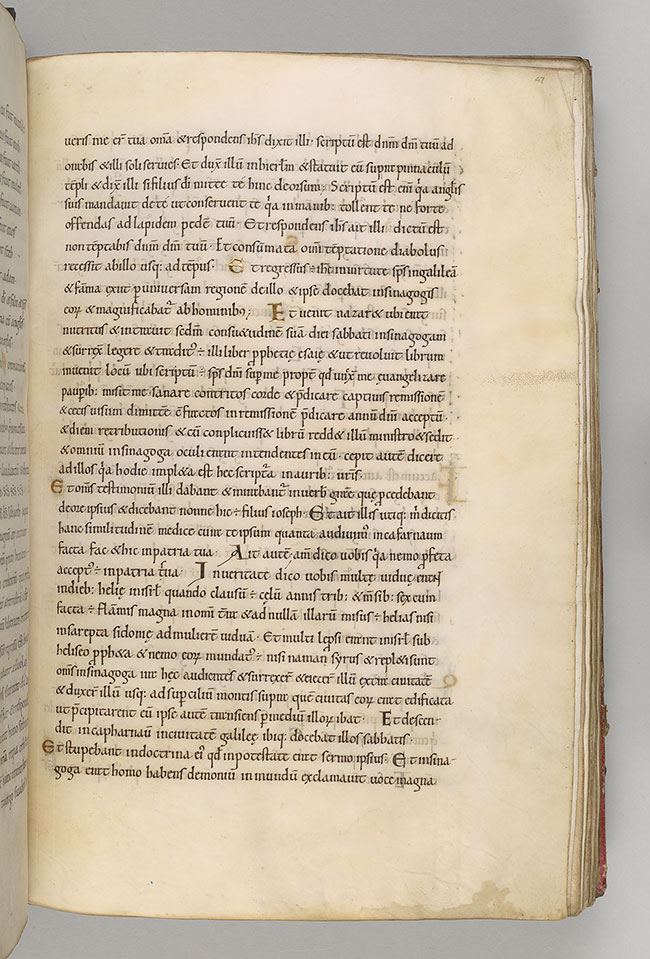 47
ueris me er̄ tua om̄a &respondens ih̄s dixit illi· scriptū est dn̄m dm̄ tuū ad
orabis &illi soli seruies· Et dux̄ illū inhierlm̄ &statuit eū supra pinnaculū
tēpli &dix̄ illi sifilius dī mitte te hinc deorsum; Scriptū est eni q̄a anglis
suis mandauit dete ut conseruent te q̄a inmanib: tollent te ne forte
offendas adlapidem pedē tuū· Etrespondens ih̄s ait illi dictū est
nontēptabis dn̄m dm̄ tuū· Et consūmata om̄i tēptatione diabolus
recessit abillo usq: adtēpus· Et regressus÷ ih̄s inuirtute sp̄s ingalileā
&fama exiit p uniuersam regionē deillo &ipse docebat insinagogis
eorꝝ &magnificabat᷑ abhominib;; Et uenit nazareth ubi erat
nutritus &intrauit sedm̄ consu&udinē suā die sabbati insinagogam
&surrex̄ legere &tradit᷑÷ illi liber pphetiç esaiç &ut reuoluit librum
inuenit locū ubi scriptū÷ sp̄s dn̄i sup me propt̄ qd unx̄ me euangelizare
paupib: misit me sanare contritos corde &p̄dicare captiuis remissionē
&cecis uisum dimitte cfractos inremissionē p̄dicare annū dn̄i acceptū·
&diem retributionis &cū conplicuiss& librū redd& illū ministro &sedit
&omniū insinagoga oculi erant intendentes ineū· cepit autē dicere
adillos q̄a hodie impl&a est hec scriptr̄a inaurib: ur̄is·
Et om̄s testimoniū illi dabant &mirabant᷑ inuerb̄ gr̄aę quę p̄cedebant
deore ipsius &dicebant nonne hic÷ filius ioseph· Et ait illis utiq: m̄ dicetis
hanc similitudinē medice cura te ipsum quanta audiuim᷒ incafarnaum
facta fac &hic inpatria tua· Ait autē am̄ dico uobis q̄a nemo p̄feta
accept᷒÷ inpatria sua· Inueritate dico uobis multę uiduę erant
indieb: helię inisrl̄ quando clausū÷ cęlū annis trib: &m̄sib: sex cum
facta÷ famis magna inomni terra &adnullā illarū misus÷ helias nisi
insarepta sidonię admulierē uiduā· Et multi leprosi erant inisrl̄ sub
heliseo ppha &nemo eorꝝ mundat᷒÷ nisi naman syrus &repl&i sunt
om̄s insinagoga ira hec audientes &surrexer̄ &eiecer̄ illū extra ciuitatē
&duxer̄ illū usq: adsup cilium montis supra quē ciuitas eorꝝ erat edificata
ut p̄cipitarent eū ipse autē transiens p mediū illorꝝ ibat· Et descen-
dit incapharnaū inciuitatē galilęę ibiq: docebat illos sabbatis·
Et stupebant indoctrina ei᷒ qd̄ inpotestate erat sermo ipsius· Et insina-
goga erat homo habens demoniū inmundū exclamauit uoce magna